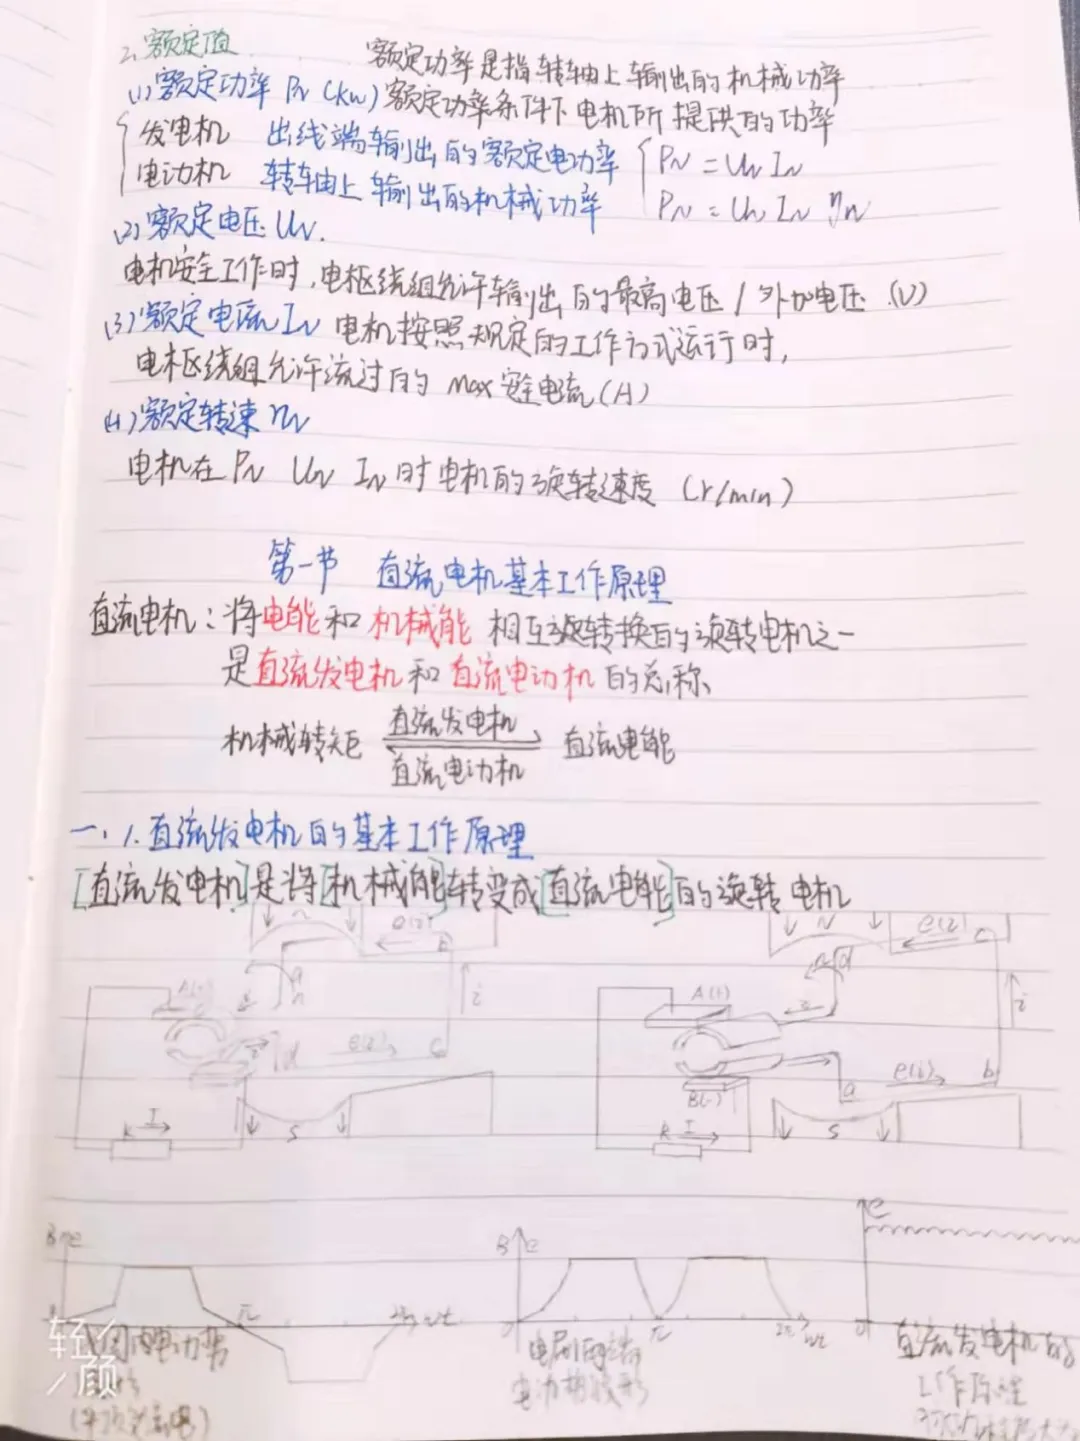 2. 额定值
额定功率是指转轴上输出的机械功率
(1) 额定功率 PN (kw) 额定功率条件下电机所提供的功率
发电机 出线端输出的额定电功率 PN = UN IN
电动机 转轴上输出的机械功率 PN = UN IN ηN
(2) 额定电压 UN.
电机安全工作时,电枢绕组允许输出的最高电压/外加电压 (V)
(3) 额定电流 IN 电机按照规定的工作方式运行时,
电枢绕组允许流过的 max 安全电流 (A)
(4) 额定转速 nN
电机在 PN UN IN 时电机的旋转速度 (r/min)
第一节 直流电机基本工作原理
直流电机:将电能和机械能相互旋转换的旋转电机之一
是直流发电机和直流电动机的总称
机械转矩 直流发电机 直流电能
直流电动机
一、1. 直流发电机的基本工作原理
[直流发电机]是将[机械能]转变成[直流电能]的旋转电机
N e(i) b
N e(i) c
a
d
i
A(+)
A(+)
i
d
e(i)
c
e(i)
b
a
B(-)
R I
S
R I
S
B e
π
2π ωt
B e
0
π
2π ωt
e
0
电动势
电刷两端
电动势波形
直流发电机的
工作原理
轻颜